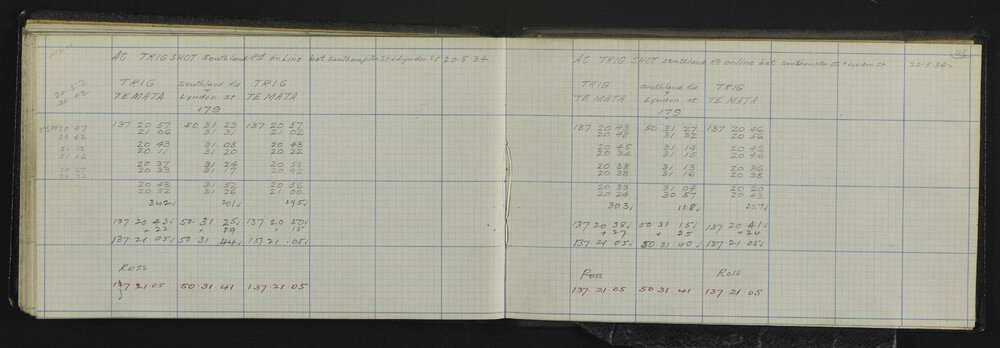 At TRIG SHOT Southland Rd on line bet Southampton St & Lyndon St 20.5.34
TRIG Southland Rd TRIG
TE MATA Lyndon st TE MATA
179
137 20 57 50 31 23 137 20 57
21 06 31 31 21 02
20 43 31 08 20 43
20 11 31 20 20 22
20 37 31 24 20 53
20 33 31 17 20 42
20 48 31 52 20 56
20 52 31 26 21 00
342 201 295
137 20 43 50 31 25 137 20 50
+ 22 " 19 " 15
137 21 05 50 31 44 137 21 05
Ross
137 21.05 50.31.41 137.21.05
43
At TRIG SHOT Southland Rd on line bet Southampton St & Lyndon St 20.5.34
TRIG Southland Rd TRIG
TE MATA Lyndon st TE MATA
179
137 20 43 50 31 27 137 20 46
20 48 31 32 20 56
20 45 31 14 20 42
20 34 31 15 20 46
20 38 31 13 20 36
20 38 31 16 20 38
20 33 31 04 20 20
20 24 30 57 20 43
303 118 327
137 20 38 50 31 15 137 20 41
+ 27 + 25 + 24
137 21 05 50 31 40 137 21 05
Ross Ross
137.21.05 50.31.41 137.21.05